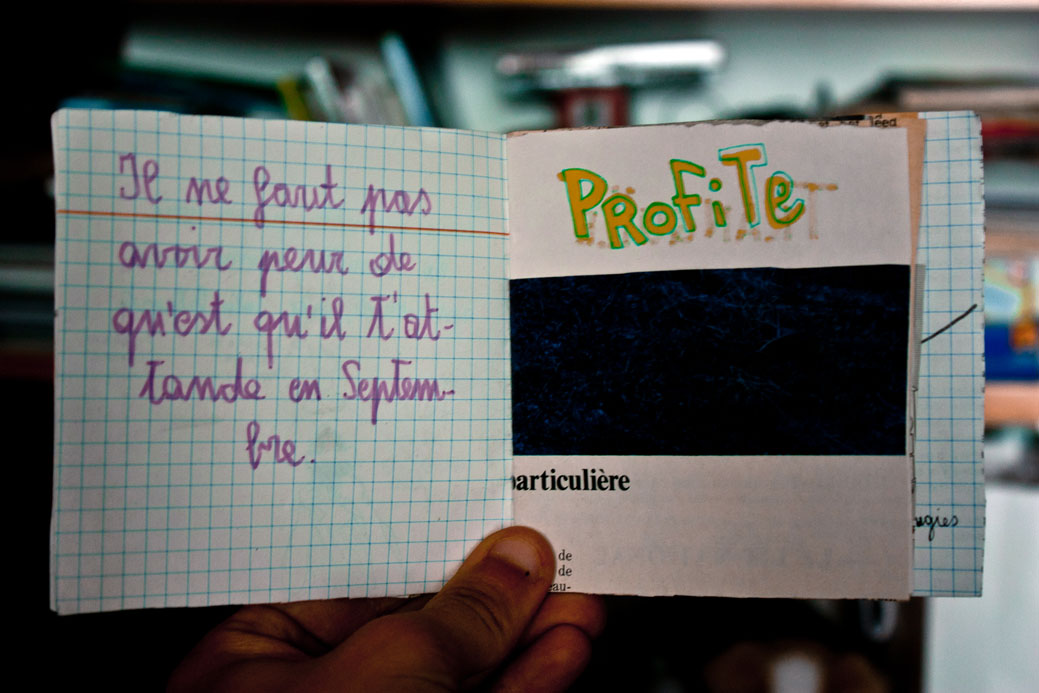 Il ne faut pas
avoir peur de
qu'est qu'il t'at-
tande en Septem-
bre.
PROFiTe
particulière
de
de
eau-
ugies